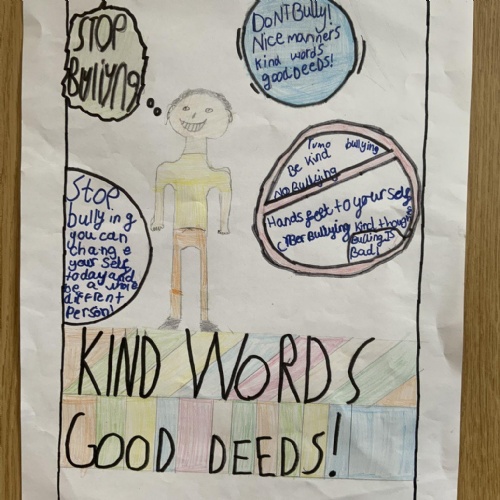 STOP
Bullying
DoNT Bully!
Nice manners
kind words
good DEEDS!
bullying
Be kind
No Bullying
Hands feet to your self
cyBer Bullying kind thoughts
Bulling Is
Bad!
STOP
bullying
you can
change
your self
today and
be a whole
different
person!
KIND WORDS
GOOD DEEDS!